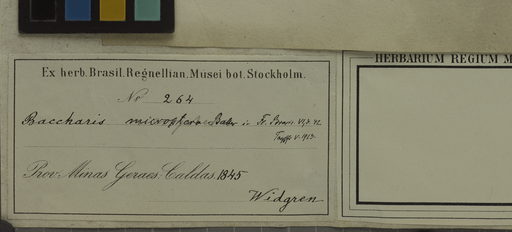 HERBARIUM REGIUM M
Ex herb. Brasil. Regnellian. Musei bot. Stockholm.
No 264
Baccharis Baker in Fl. Brasil. VI, 3. 42
V. 1913.
Prov. Minas Geraes: Caldas, 1845
Widgren